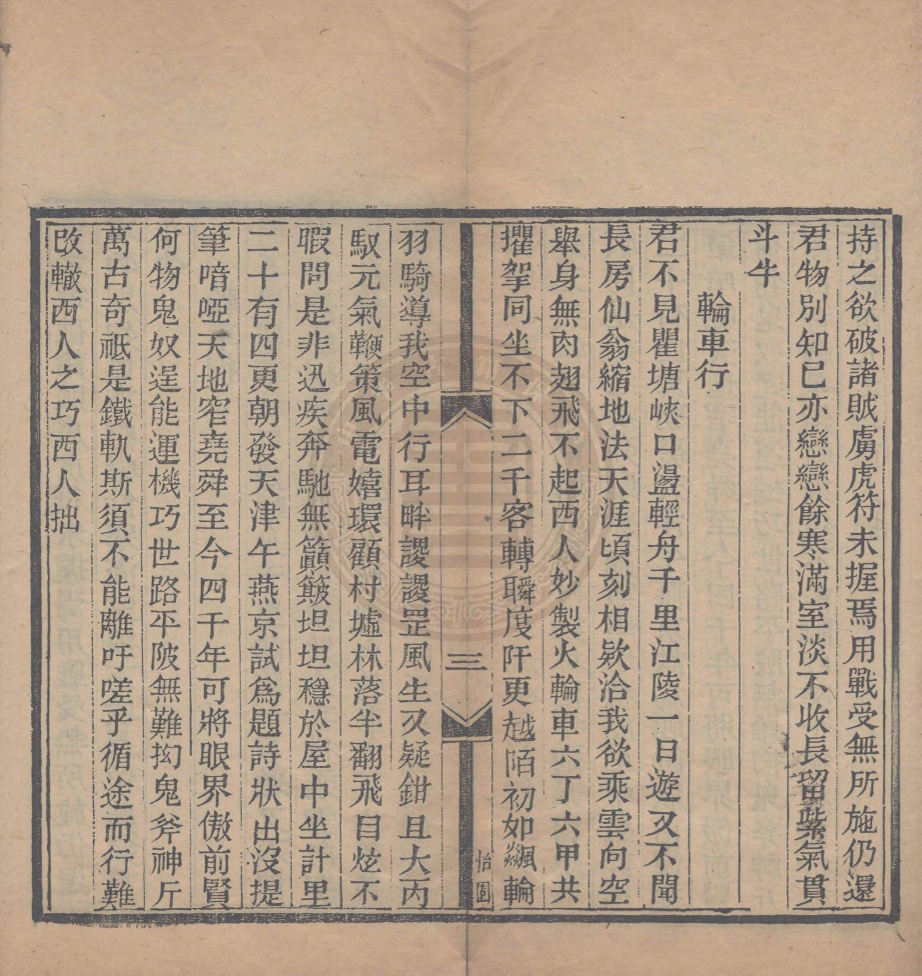 持之欲破諸賊虜虎符未握焉用戰受無所施仍還
君物別知己亦戀戀餘寒滿室淡不收長留紫氣貫
斗牛
輪車行
君不見瞿塘峽口盪輕舟千里江陵一日遊又不聞
長房仙翁縮地法天涯頃刻相欵洽我欲乘雲向空
舉身無肉翅飛不起西人妙製火輪車六丁六甲共
擢拏同坐不下二千客轉瞬度阡更越陌初如飆輪
三
怡園
羽騎導我空中行耳畔謖謖罡風生又疑鉗且大丙
馭元氣鞭策風電嬉環顧村墟林落半翻飛目炫不
暇問是非迅疾奔馳無簸坦坦穩於屋中坐計里
二十有四更朝發天津午燕京試爲題詩狀出沒提
筆喑啞天地窄堯舜至今四千年可將眼界傲前賢
何物鬼奴逞能運機巧世路平陂無難拗鬼斧神斤
萬古奇祗是鐵軌斯須不能離吁嗟乎循途而行難
改轍西人之巧西人拙